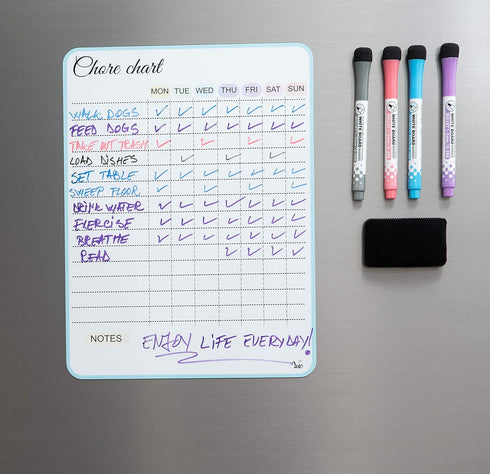 Chore chart
MON TUE WED THU FRI SAT SUN
WALK DOGS ✓ ✓ ✓ ✓ ✓ ✓ ✓
FEED DOGS ✓ ✓ ✓ ✓ ✓ ✓ ✓
TAKE OUT TRASH ✓ ✓ ✓ ✓
LOAD DISHES ✓ ✓ ✓
SET TABLE ✓ ✓ ✓ ✓ ✓ ✓ ✓
SWEEP FLOOR ✓ ✓ ✓ ✓
DRINK WATER ✓ ✓ ✓ ✓ ✓ ✓ ✓
EXERCISE ✓ ✓ ✓ ✓ ✓ ✓ ✓
BREATHE ✓ ✓ ✓ ✓ ✓ ✓ ✓
READ ✓ ✓ ✓ ✓
NOTES ENJOY LIFE EVERYDAY!
WHITE BOARD
WHITE BOARD
WHITE BOARD
WHITE BOARD